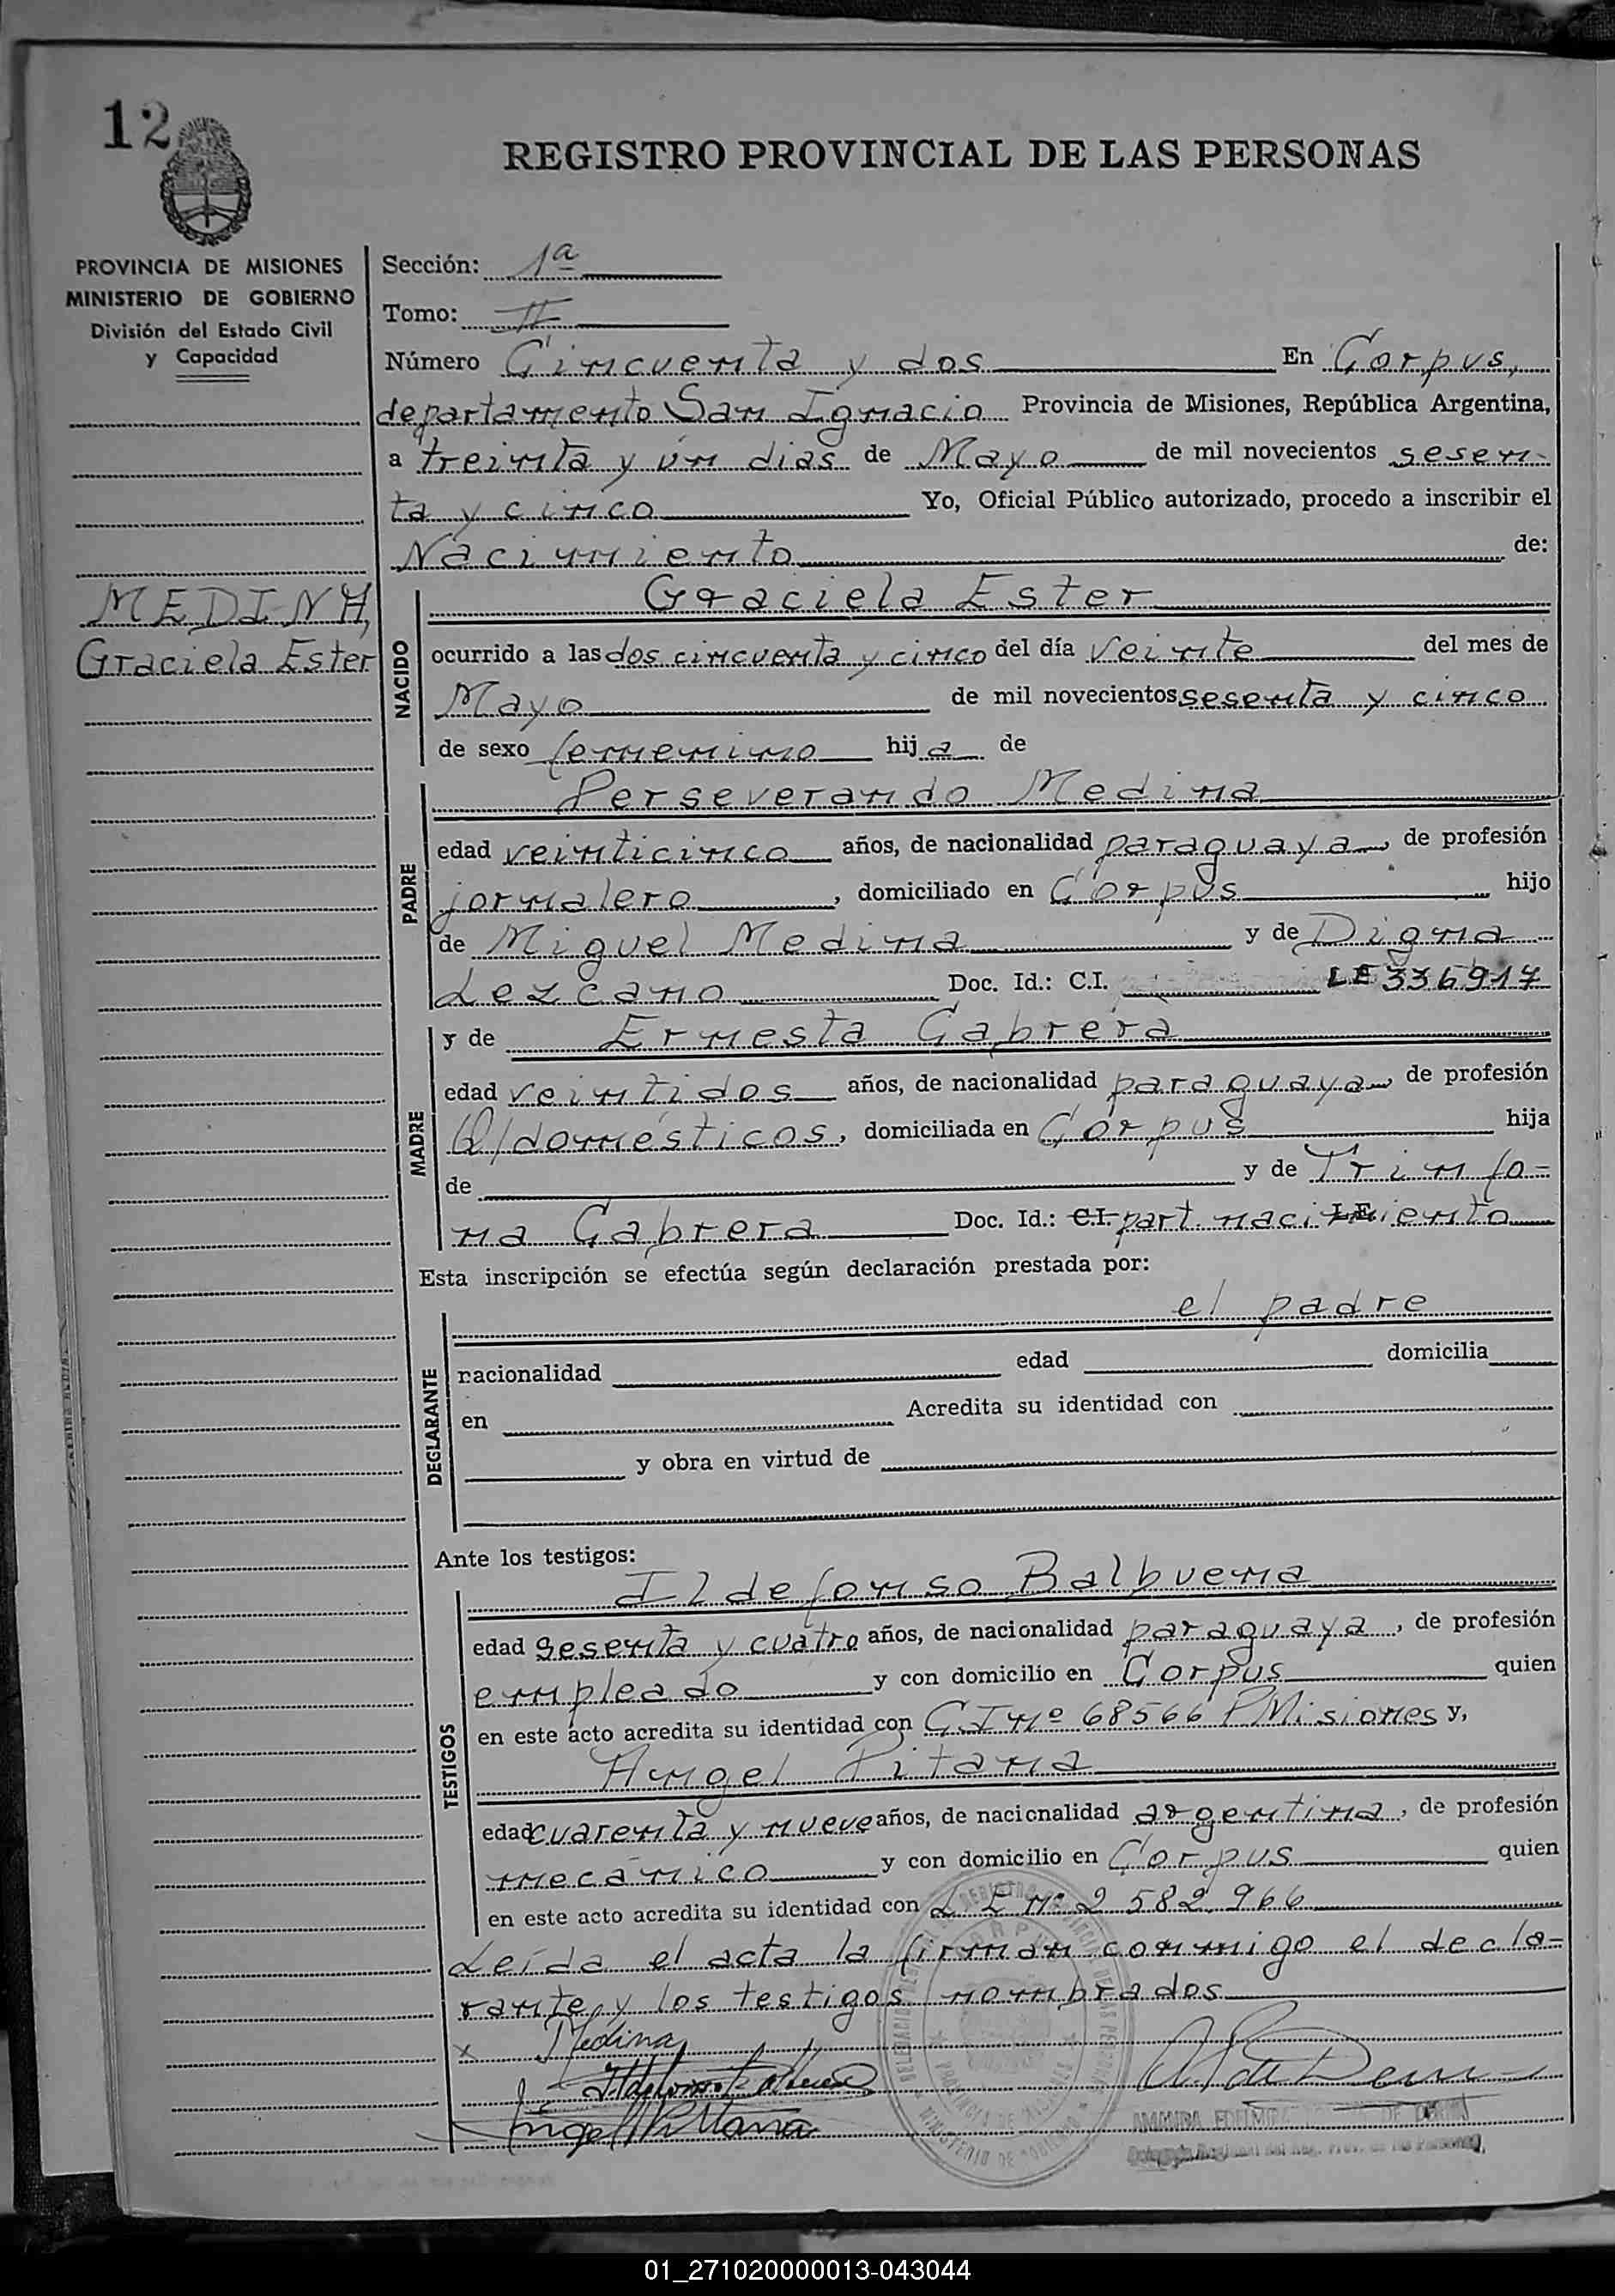 12
REGISTRO PROVINCIAL DE LAS PERSONAS
PROVINCIA DE MISIONES
MINISTERIO DE GOBIERNO
División del Estado Civil
y Capacidad
Sección: 1ª
Tomo: II
Número Cincuenta y dos En Corpus,
departamento San Ignacio Provincia de Misiones, República Argentina,
a treinta y ún dias de Mayo de mil novecientos sesen-
ta y cinco Yo, Oficial Público autorizado, procedo a inscribir el
Nacimiento de:
MEDINA,
Graciela Ester
NACIDO
Graciela Ester
ocurrido a las dos cincuenta y cinco del día veinte del mes de
Mayo de mil novecientos sesenta y cinco
de sexo femenino hija de
PADRE
Perseverando Medina
edad veinticinco años, de nacionalidad paraguaya, de profesión
jornalero, domiciliado en Corpus hijo
de Miguel Medina y de Digna
Lezcano Doc. Id.: C.I. LE 336917
MADRE
y de Ernesta Cabrera
edad veintidos años, de nacionalidad paraguaya, de profesión
Q/domésticos, domiciliada en Corpus hija
de y de Trinfo=
na Cabrera Doc. Id.: C.I. part. nacimiento
Esta inscripción se efectúa según declaración prestada por:
DECLARANTE
el padre
nacionalidad edad domicilia
en Acredita su identidad con
y obra en virtud de
Ante los testigos:
TESTIGOS
Ildefonso Balbuena
edad sesenta y cuatro años, de nacionalidad paraguaya, de profesión
empleado y con domicilio en Corpus quien
en este acto acredita su identidad con C I nº 68566 P Misiones y,
Angel Pitana
edad cuarenta y nueve años, de nacionalidad argentina, de profesión
mecánico y con domicilio en Corpus quien
en este acto acredita su identidad con L E nº 2 582.966
Leída el acta la firman conmigo el decla=
rante y los testigos nombrados
x Medina
Angel Pitana
01_271020000013-043044